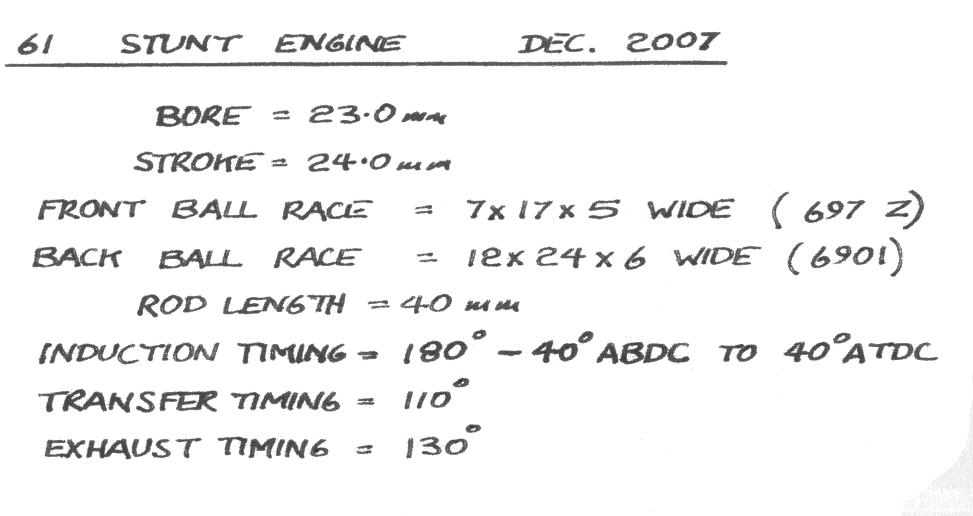 61 STUNT ENGINE DEC. 2007
BORE = 23.0 mm
STROKE = 24.0 mm
FRONT BALL RACE = 7x17x5 WIDE (697 Z)
BACK BALL RACE = 12x24x6 WIDE (6901)
ROD LENGTH = 40 mm
INDUCTION TIMING = 180° - 40° ABDC TO 40° ATDC
TRANSFER TIMING = 110°
EXHAUST TIMING = 130°